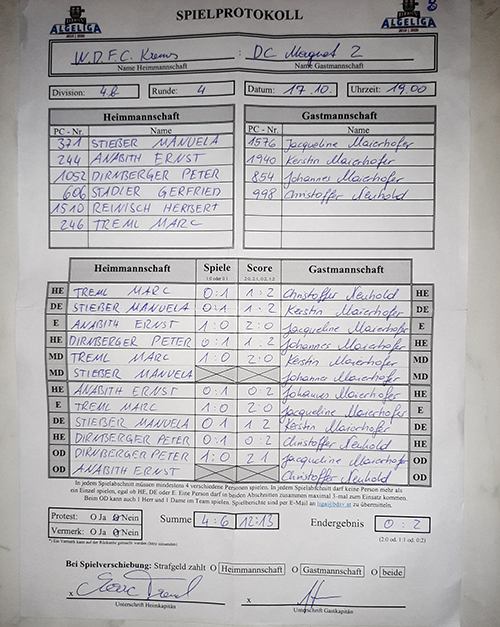 ALGELIGA SPIELPROTOKOLL ALGELIGA
W.D.F.C. Krems : DC Magnet 2
Name Heimmannschaft Name Gastmannschaft
Division: 4.b Runde: 4 Datum: 17.10. Uhrzeit: 19.00
Heimmannschaft Gastmannschaft
PC - Nr. Name PC - Nr. Name
371 STIEßER MANUELA 1576 Jacqueline Maierhofer
244 ANABITH ERNST 1940 Kerstin Maierhofer
1052 DIRNBERGER PETER 854 Johannes Maierhofer
606 STADLER GERFRIED 998 Christoffer Neuhold
1510 REINISCH HERBERT
246 TREML MARC
Heimmannschaft Spiele Score Gastmannschaft
1:0 oder 0:1 2:0, 2:1, 0:2, 1:2
HE TREML MARC 0:1 1:2 Christoffer Neuhold HE
DE STIEßER MANUELA 0:1 1:2 Kerstin Maierhofer DE
E ANABITH ERNST 1:0 2:0 Jacqueline Maierhofer E
HE DIRNBERGER PETER 0:1 1:2 Johannes Maierhofer HE
MD TREML MARC 1:0 2:0 Kerstin Maierhofer MD
MD STIEßER MANUELA Johannes Maierhofer MD
HE ANABITH ERNST 0:1 0:2 Johannes Maierhofer HE
E TREML MARC 1:0 2:0 Jacqueline Maierhofer E
DE STIEßER MANUELA 0:1 1:2 Kerstin Maierhofer DE
HE DIRNBERGER PETER 0:1 0:2 Christoffer Neuhold HE
OD DIRNBERGER PETER 1:0 2:1 Jacqueline Maierhofer OD
OD ANABITH ERNST Christoffer Neuhold OD
In jedem Spielabschnitt müssen mindestens 4 verschiedene Personen spielen. In jedem Spielabschnitt darf keine Person mehr als
ein Einzel spielen, egal ob HE, DE oder E. Eine Person darf in beiden Abschnitten zusammen maximal 3-mal zum Einsatz kommen.
Beim OD kann auch 1 Herr und 1 Dame im Team spielen. Spielberichte sind per E-Mail an liga@bdsv.at zu übermitteln.
Protest: O Ja O Nein Summe 4:6 12:13 Endergebnis 0:2
Vermerk: O Ja O Nein (2:0 od. 1:1 od. 0:2)
Bei Spielverschiebung: Strafgeld zahlt O Heimmannschaft O Gastmannschaft O beide
x x
Unterschrift Heimkapitän Unterschrift Gastkapitän